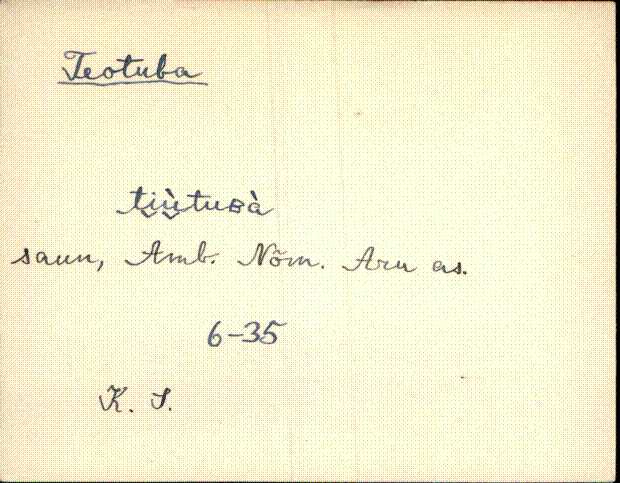 Teotuba
ti̬ù̬tuʙà
saun, Amb. Nõm. Aru as.
6-35
K. S.